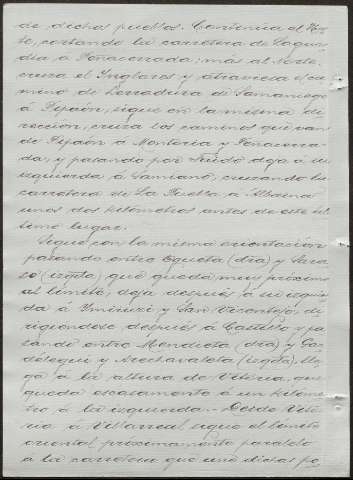 de dichos pueblos. Continúa al Nor-
te, cortando la carretera de Laguar-
dia á Peñacerrada; más al Norte,
cruza el Inglares y atraviesa el ca-
mino de herradura de Samaniego
á Pipaón; sigue en la misma di-
rección, cruza los caminos que van
de Pipaón á Montoria y Peñacerra-
da, y pasando por Faido deja á su
izquierda á Samiano, cruzando la
carretera de La Puebla á Albaina
unos dos kilómetros antes de este úl-
timo lugar.
Sigue con la misma orientación
pasando entre Ogueta (dra) y Sara-
só (izqda) que queda muy próximo
al límite; deja después á su izquier-
da á Imiruri y San Vicentejo, di-
rigiéndose después á Castillo y pa-
sando entre Mendiola (dra) y Gar-
délegui y Arechavaleta (izqda), lle-
ga á la altura de Vitoria, que
queda escasamente á un kilóme-
tro á la izquierda.- Desde Vito-
ria á Villarreal sigue el límite
oriental próximamente paralelo
á la carretera que une dichas po-